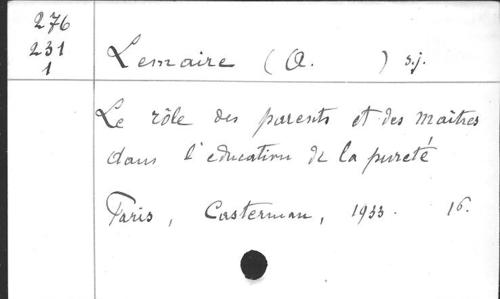 276
231
1
Lemaire (A. ) s.j.
Le rôle des parents et des maîtres
dans l'education de la pureté
Paris, Casterman, 1933. 16.